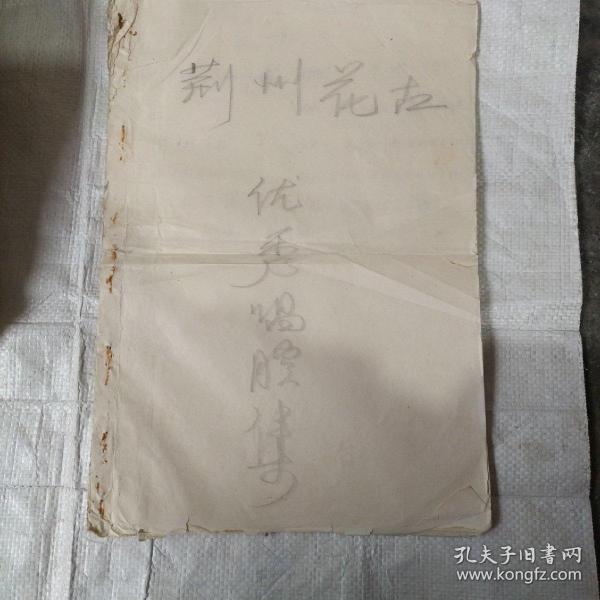 荆州花古
优秀唱腔集
孔夫子旧书网
www.kongfz.com